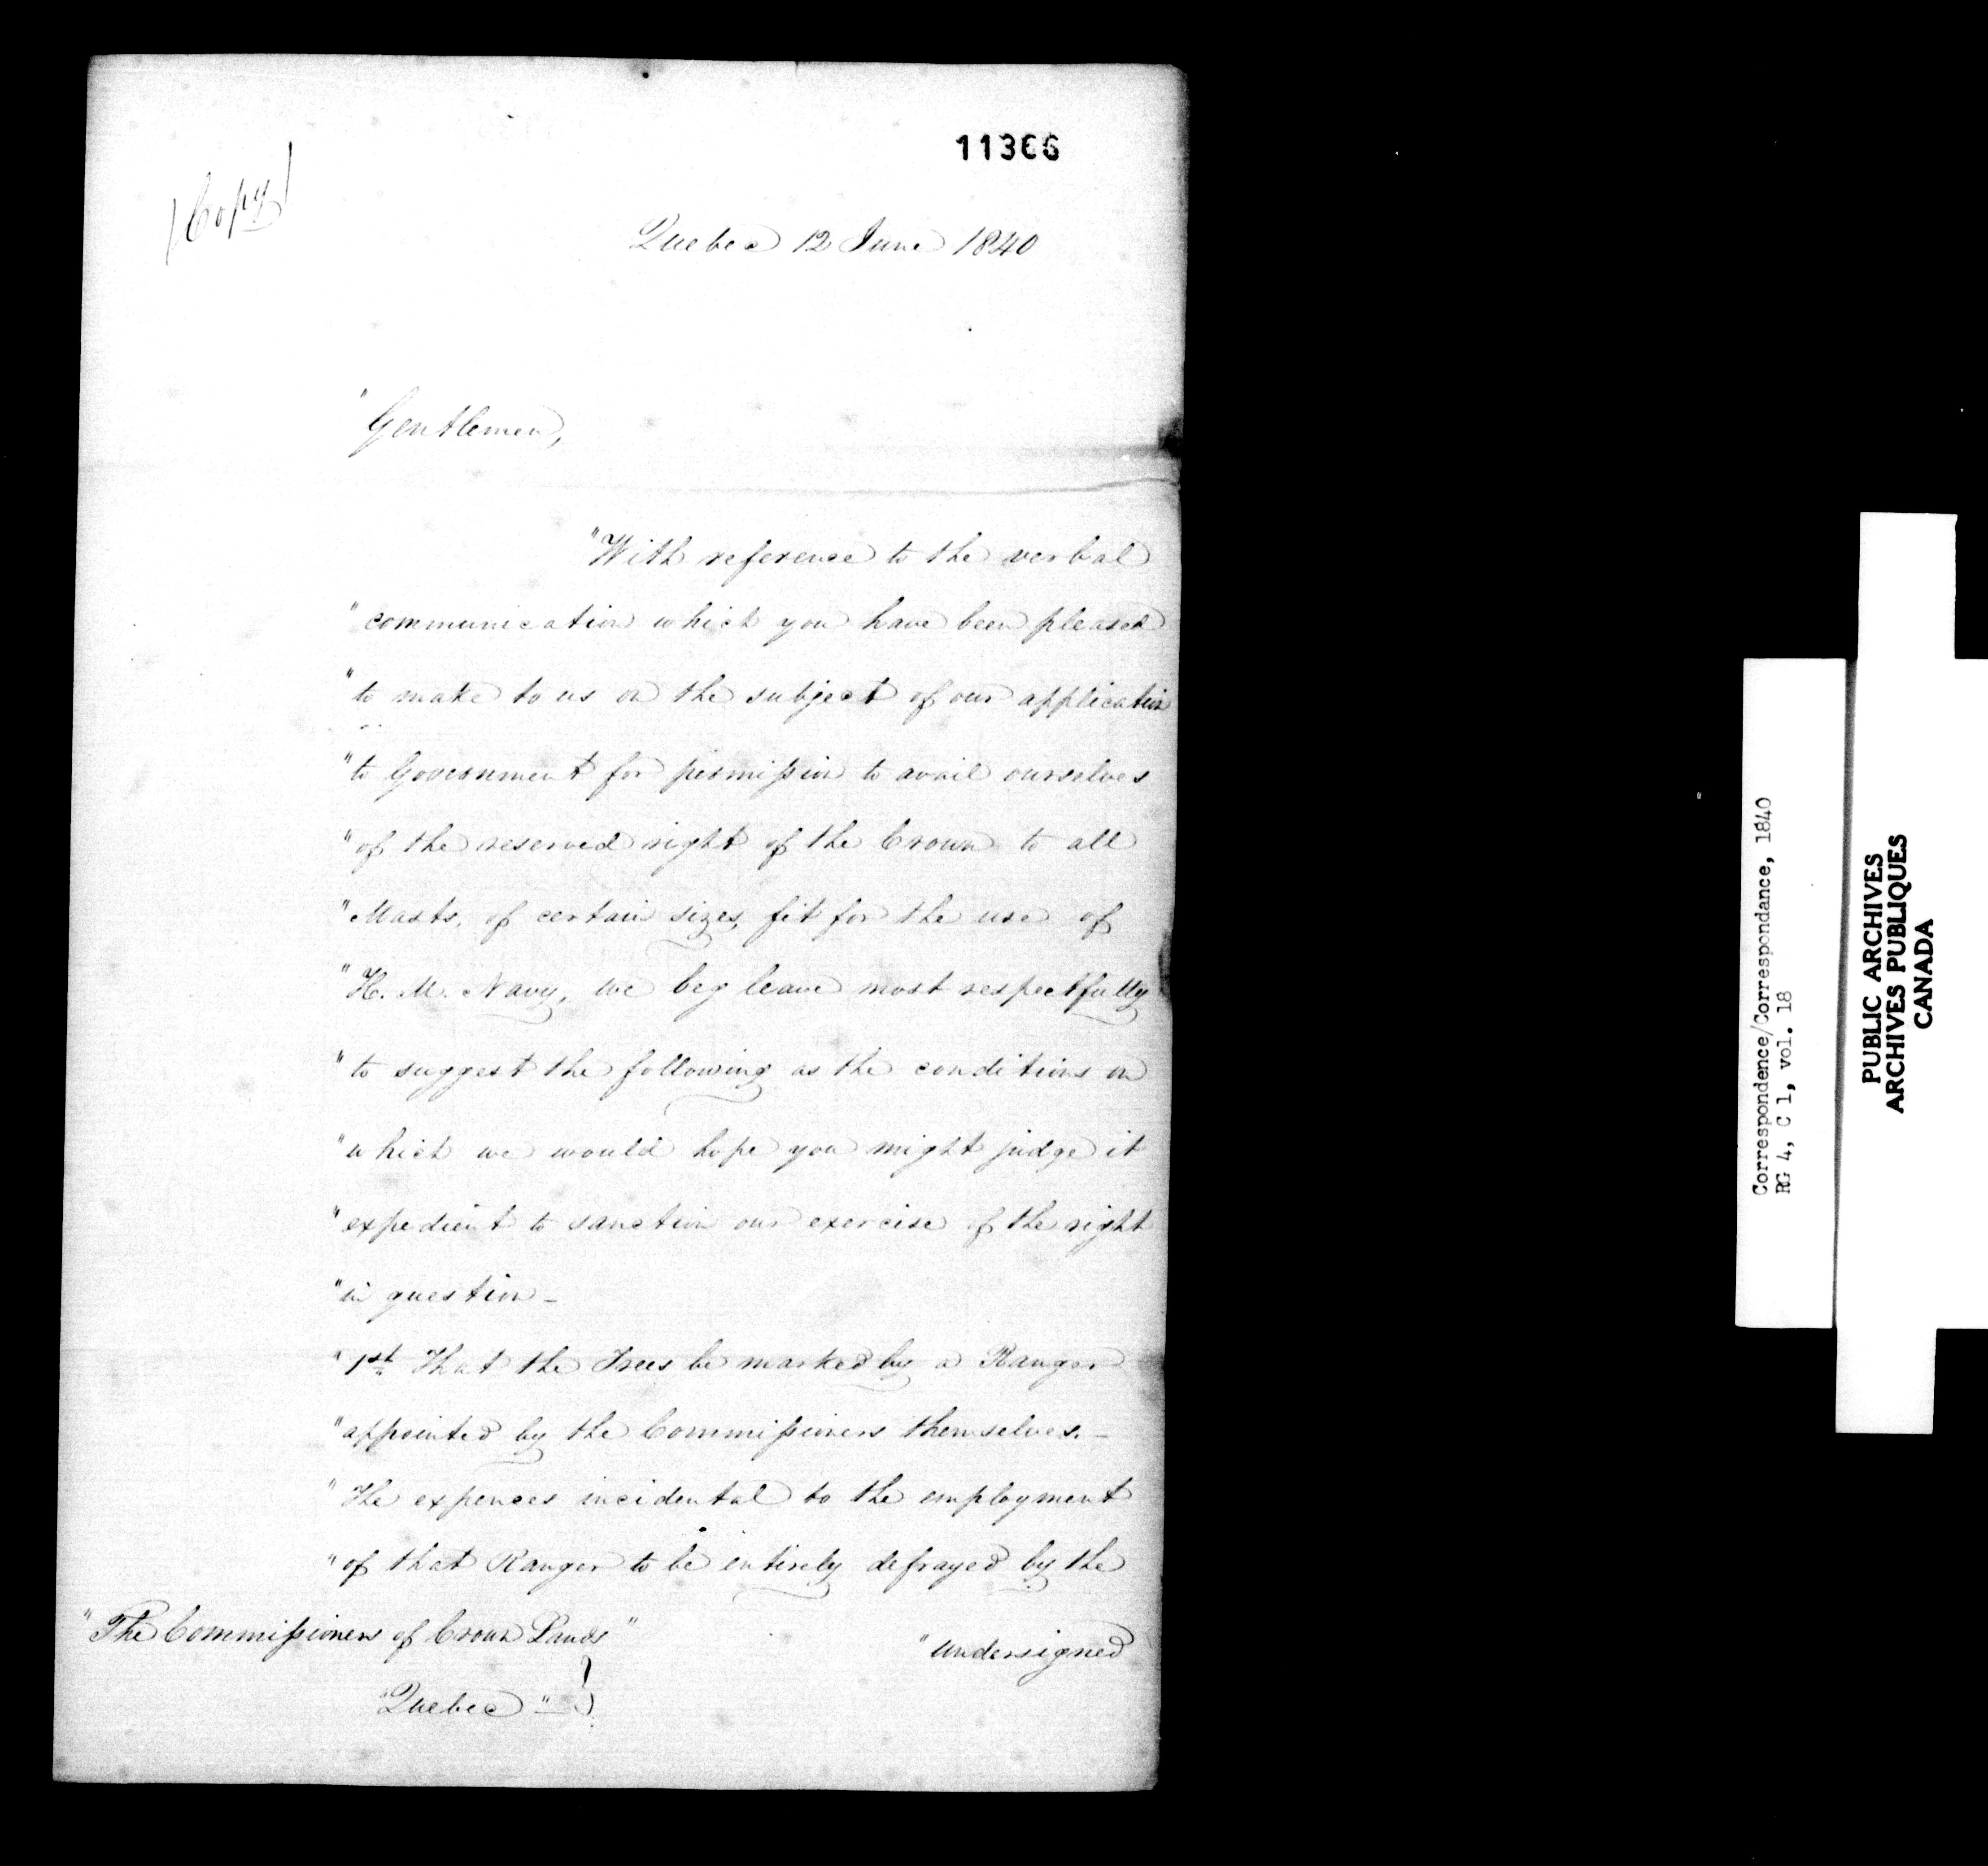 11366
(Copy)
Quebec 12 June 1840
"Gentlemen,
"With reference to the verbal
"communication which you have been pleased
"to make to us on the subject of our application
"to Government for permission to avail ourselves
"of the reserved right of the Crown to all
"Masts, of certain sizes, fit for the use of
"H. M. Navy, we beg leave most respectfully
"to suggest the following as the conditions on
"which we would hope you might judge it
"expedient to sanction our exercise of the right
"in question _
"1st That the Trees be marked by a Ranger
"appointed by the Commissioners themselves. _
"The expences incidental to the employment
"of that Ranger to be entirely defrayed by the
"undersigned
"The Commissioners of Crown Lands"
"Quebec"
Correspondence/Correspondance, 1840
RG 4, C 1, vol. 18
PUBLIC ARCHIVES
ARCHIVES PUBLIQUES
CANADA